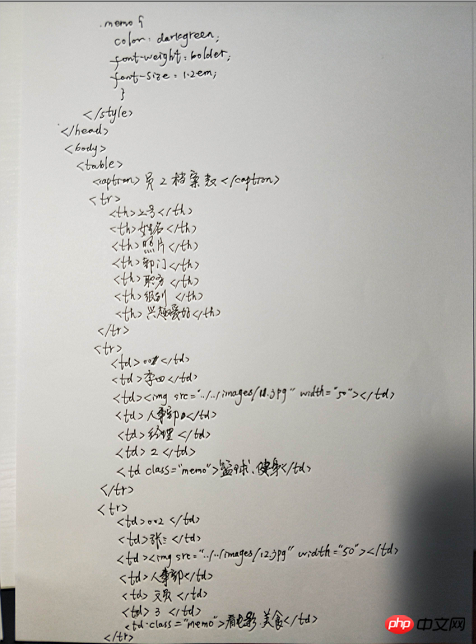 .memo{
color: darkgreen;
font-weight: bolder;
font-size: 1.2em;
}
</style>
</head>
<body>
<table>
<caption>员工档案表</caption>
<tr>
<th>工号</th>
<th>姓名</th>
<th>照片</th>
<th>部门</th>
<th>职务</th>
<th>级别</th>
<th>兴趣爱好</th>
</tr>
<tr>
<td>001</td>
<td>李四</td>
<td><img src="../../images/18.jpg" width="50"></td>
<td>人事部</td>
<td>经理</td>
<td>2</td>
<td class="memo">篮球、健身</td>
</tr>
<tr>
<td>002</td>
<td>张三</td>
<td><img src="../../images/12.jpg" width="50"></td>
<td>人事部</td>
<td></td>
<td>3</td>
<td class="memo">看电影 美食</td>
</tr>
php 中文网